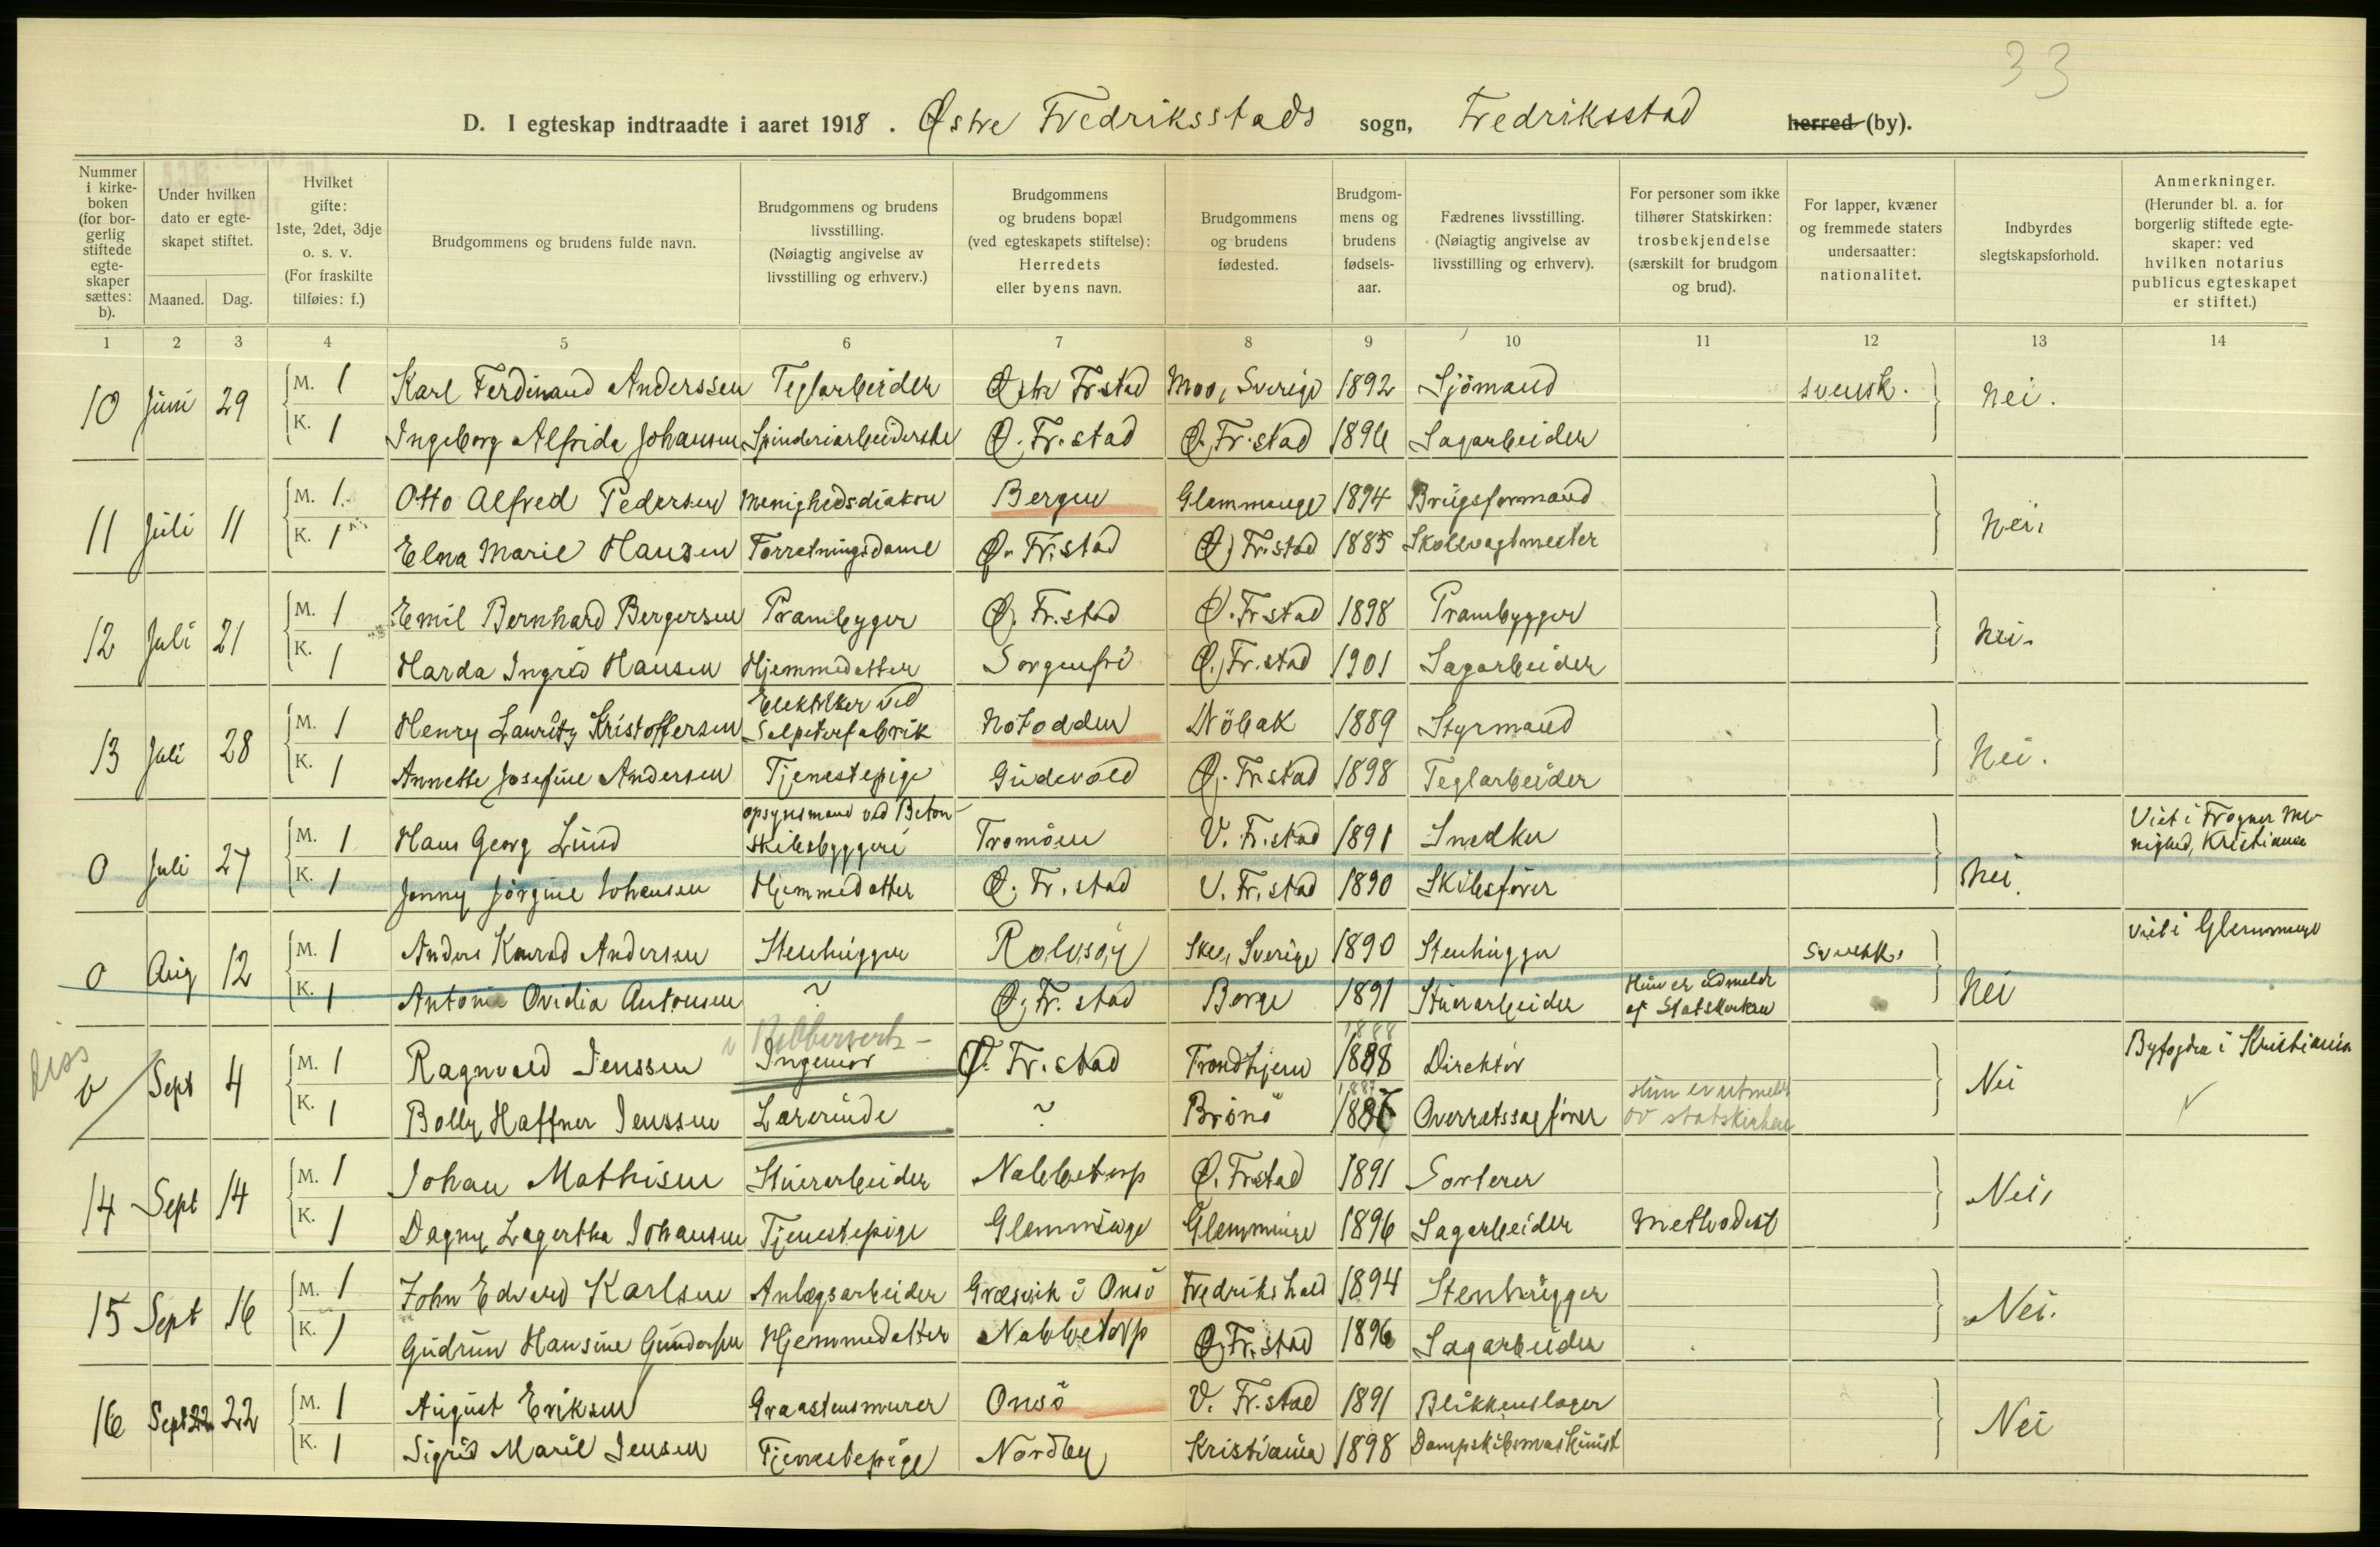 33
D. I egteskap indtraadte i aaret 1918. Østre Fredriksstads sogn, Fredriksstad herred (by).
Nummer i kirke-boken (for bor-gerlig stiftede egte-skaper sættes: b).
Under hvilken dato er egte-skapet stiftet.
Maaned. Dag.
Hvilket gifte: 1ste, 2det, 3dje o. s. v. (For fraskilte tilføies: f.)
Brudgommens og brudens fulde navn.
Brudgommens og brudens livsstilling. (Nøiagtig angivelse av livsstilling og erhverv.)
Brudgommens og brudens bopæl (ved egteskapets stiftelse): Herredets eller byens navn.
Brudgommens og brudens fødested.
Brudgom-mens og brudens fødsels-aar.
Fædrenes livsstilling. (Nøiagtig angivelse av livsstilling og erhverv).
For personer som ikke tilhører Statskirken: trosbekjendelse (særskilt for brudgom og brud).
For lapper, kvæner og fremmede staters undersaatter: nationalitet.
Indbyrdes slegtskapsforhold.
Anmerkninger. (Herunder bl. a. for borgerlig stiftede egte-skaper: ved hvilken notarius publicus egteskapet er stiftet.)
1 2 3 4 5 6 7 8 9 10 11 12 13 14
10 Juni 29 M. 1 Karl Ferdinand Anderssen Teglarbeider Østre Fr.stad Moo, Sverige 1892 Sjömand svensk. Nei.
K. 1 Ingeborg Alfrida Johansen Spinderiarbeiderske Ø. Fr.stad Ø. Fr.stad 1896 Sagarbeider
11 Juli 11 M. 1 Otto Alfred Pedersen Menighedsdiakon Bergen Glemminge 1894 Brugsformand Nei.
K. 1 Elna Marie Hansen Forretningsdame Ø. Fr.stad Ø. Fr.stad 1885 Skolevagtmester
12 Juli 21 M. 1 Emil Bernhard Bergersen Prambygger Ø. Fr.stad Ø. Fr.stad 1898 Prambygger Nei.
K. 1 Harda Ingrid Hansen Hjemmedatter Sorgenfri Ø. Fr.stad 1901 Sagarbeider
13 Juli 28 M. 1 Henry Lauritz Kristoffersen Elektriker ved Salpeterfabrik Notodden Dröbak 1889 Styrmand Nei.
K. 1 Annette Josefine Andersen Tjenestepige Gudevold Ø. Fr.stad 1898 Teglarbeider
0 Juli 27 M. 1 Hans Georg Lund opsynsmand ved Beton-skibsbyggeri Tromöen V. Fr.stad 1891 Snedker Nei. Viet i Frogner Me-nighed, Kristiania
K. 1 Jenny Jörgine Johansen Hjemmedatter Ø. Fr.stad V. Fr.stad 1890 Skibsförer
0 Aug 12 M. 1 Anders Konrad Andersen Stenhugger Rolvsöy Skee, Sverige 1890 Stenhugger svensk. Nei viet i Glemminge
K. 1 Antonie Ovidia Antonsen ~ Ø. Fr.stad Borge 1891 Stuerarbeider Hun er udmeldt af Statskirken
0 Sept 4 M. 1 Ragnvald Jenssen Ingeniör Ø. Fr.stad Trondhjem 1888 1888 Direktör Nei Byfogden i Kristiania
K. 1 Bolly Haffner Jenssen Lærerinde ~ Brönö 1887 Overretssagförer Hun er utmeldt av statskirken
14 Sept 14 M. 1 Johan Mathisen Stuerarbeider Nabbetorp Ø. Fr.stad 1891 Sorterer Nei,
K. 1 Dagny Lagertha Johansen Tjenestepige Glemminge Glemminge 1896 Sagarbeider Methodist
15 Sept 16 M. 1 John Edvard Karlsen Anlægsarbeider Græsvik i Onsö Fredrikshald 1894 Stenhugger Nei.
K. 1 Gudrun Hansine Gundersen Hjemmedatter Nabbetorp Ø. Fr.stad 1896 Sagarbeider
16 Sept 22 22 M. 1 August Eriksen Graastensmurer Onsö V. Fr.stad 1891 Blikkenslager Nei
K. 1 Sigrid Marie Jensen Tjenestepige Nordby Kristiania 1898 Dampskibsmaskinist